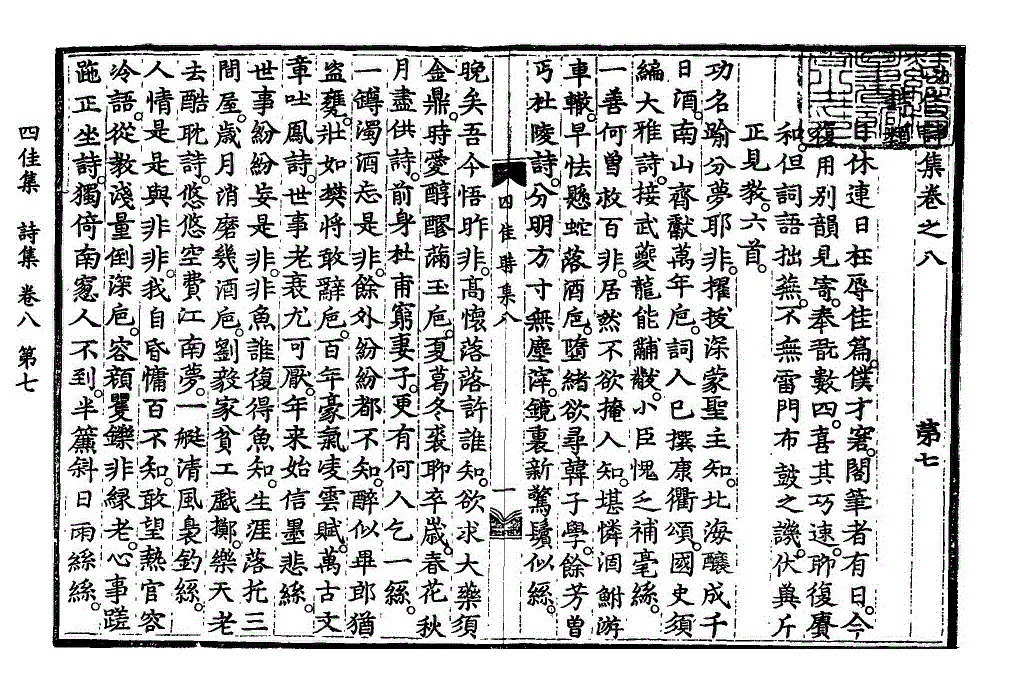 詩集卷之八　第七
日休連日枉辱佳篇。僕才窘。閣筆者有日。今
復用別韻見寄。奉翫數四。喜其巧速。聊復賡
和。但詞語拙蕪。不無雷門布鼓之譏。伏冀斤
正見敎。六首。
功名踰分夢耶非。擢拔深蒙聖主知。北海釀成千
日酒。南山齊獻萬年巵。詞人已撰康衢頌。國史須
編大雅詩。接武夔龍能黼黻。小臣愧乏補毫絲。
一善何曾救百非。居然不欲掩人知。堪憐涸鮒游
車轍。早怯懸蛇落酒巵。墮緖欲尋韓子學。餘芳曾
丐杜陵詩。分明方寸無塵滓。鏡裏新驚鬢似絲。
四佳詩集八　一
晚矣吾今悟昨非。高懷落落許誰知。欲求大藥須
金鼎。時愛醇醪滿玉巵。夏葛冬裘聊卒歲。春花秋
月盡供詩。前身杜甫窮妻子。更有何人乞一絲。
一罇濁酒忘是非。餘外紛紛都不知。醉似畢郎猶
盜甕。壯如樊將敢辭巵。百年豪氣凌雲賦。萬古文
章吐鳳詩。世事老衰尤可厭。年来始信墨悲絲。
世事紛紛妄是非。非魚誰復得魚知。生涯落托三
間屋。歲月消磨幾酒巵。劉毅家貧工戲擲。樂天老
去酷耽詩。悠悠空費江南夢。一艇清風裊釣絲。
人情是是與非非。我自昏慵百不知。敢望熱官容
冷語。從教淺量倒深巵。容顔矍鑠非緑老。心事蹉
跎正坐詩。獨倚南窓人不到。半簾斜日雨絲絲。
四佳集　詩集　卷八　第七